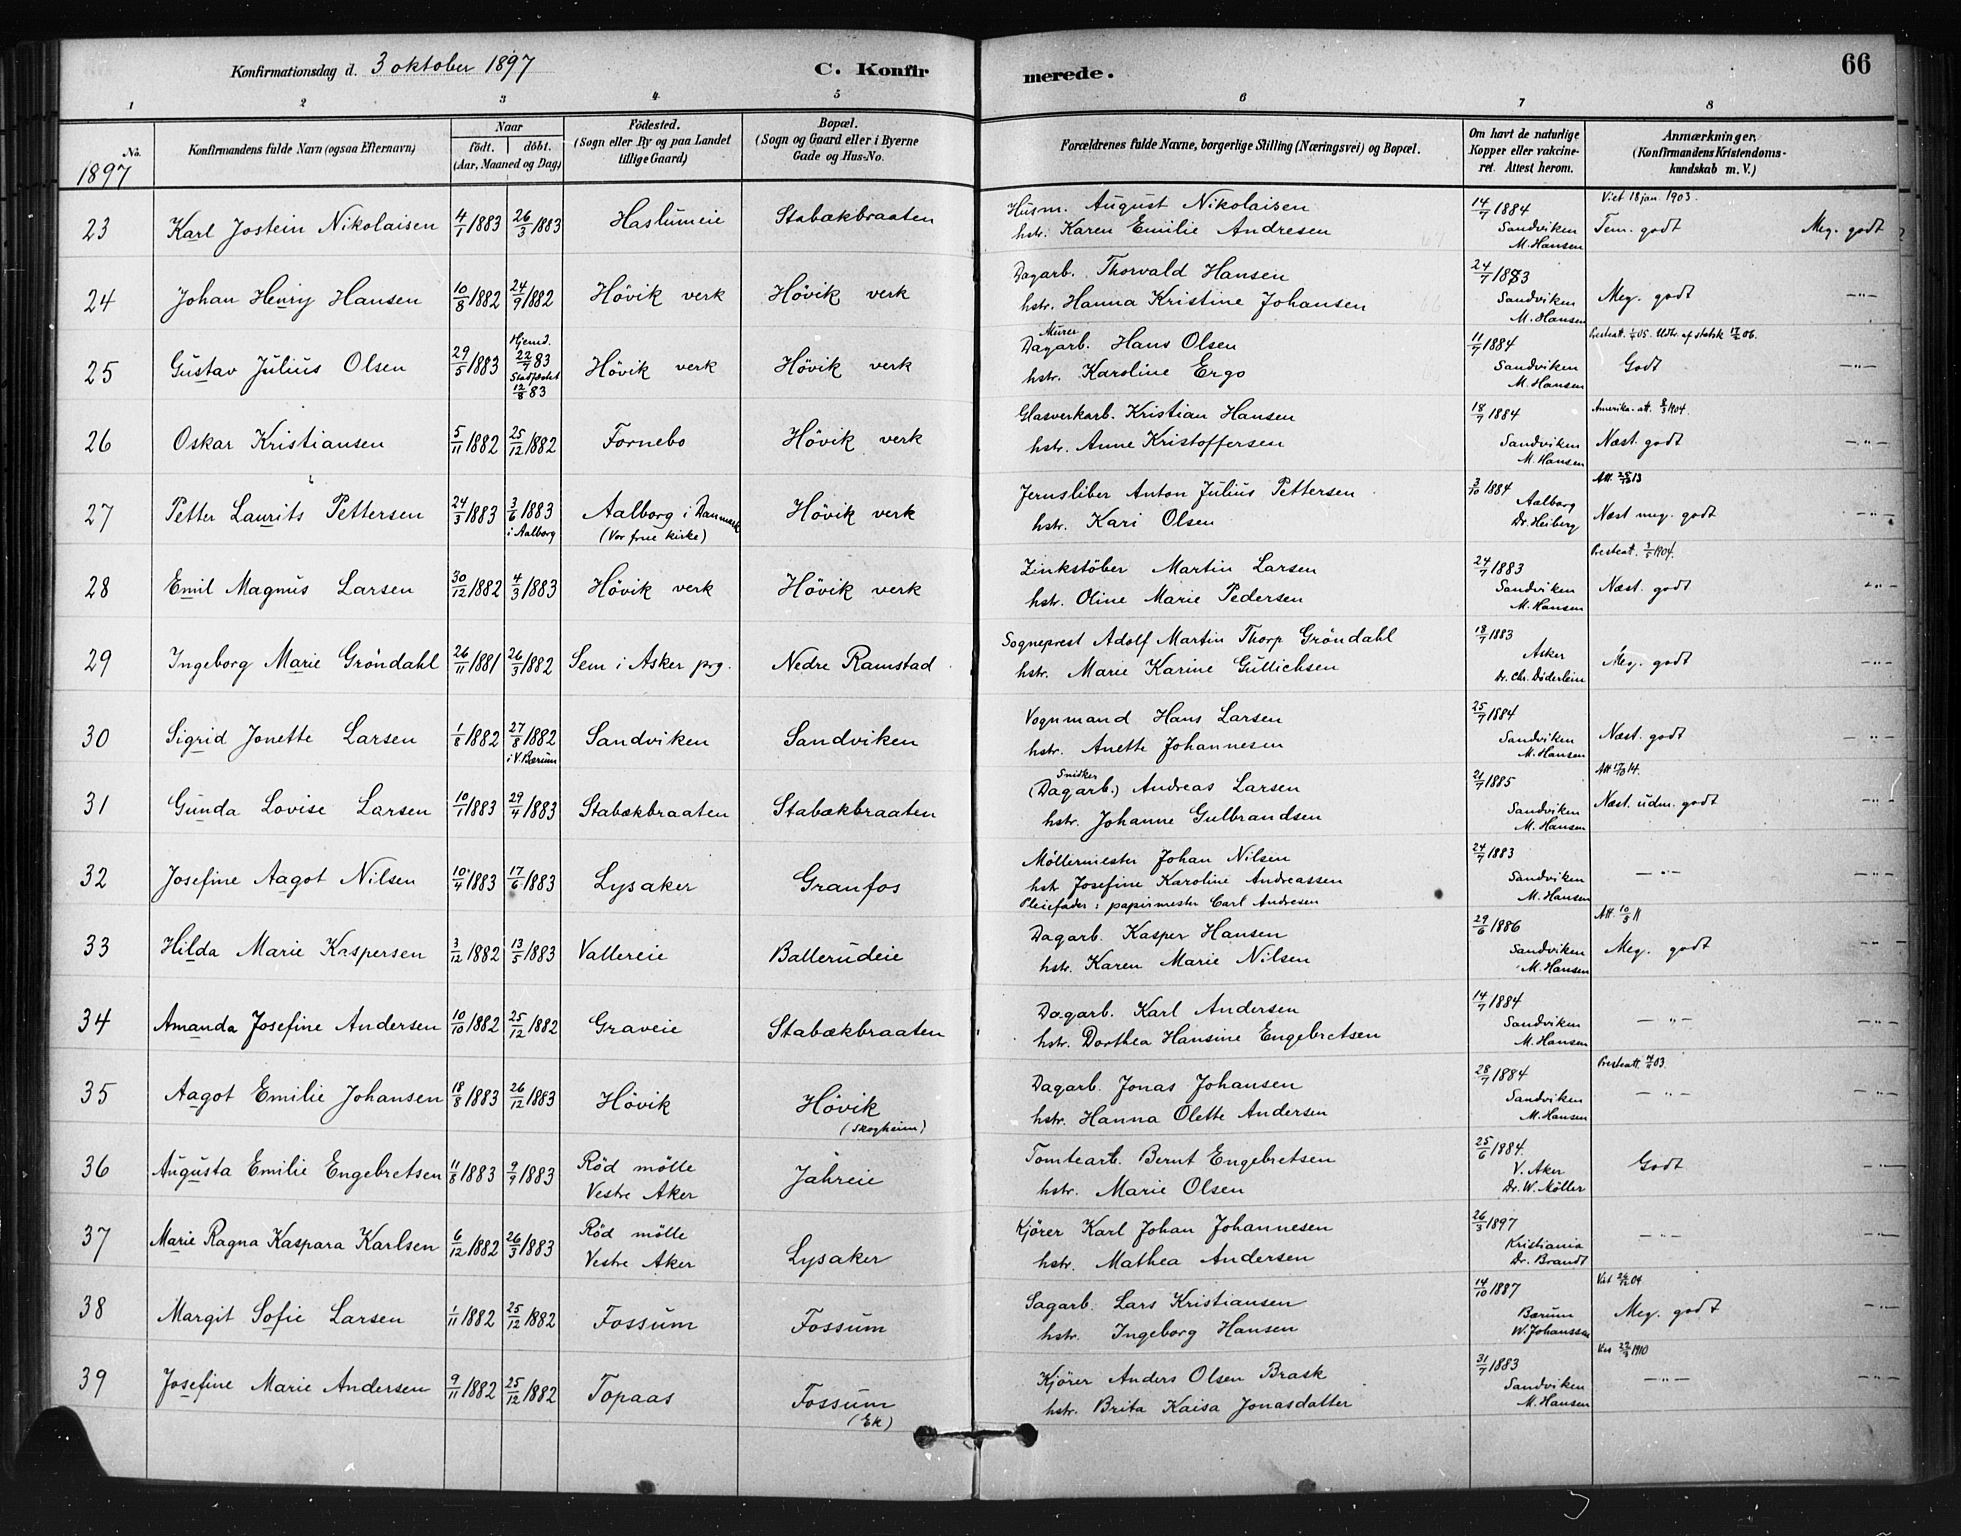 Konfirmationsdag d. 3 oktober 1897
C. Konfirmerede.
66
1 2 3 4 5 6 7 8
No. Konfirmandens fulde Navn (ogsaa Efternavn)
Naar
födt. döbt.
(Aar, Maaned og Dag)
Födested.
(Sogn eller By og paa Landet
tillige Gaard)
Bopæl.
(Sogn og Gaard eller i Byerne
Gade og Hus-No.
Forældrenes fulde Navne, borgerlige Stilling (Næringsvei) og Bopæl.
Om havt de naturlige
Kopper eller vakcine-
ret. Attest herom.
Anmærkninger.
(Konfirmandens Kristendoms-
kundskab m. V.)
1897
23 Karl Jostein Nikolaisen 4/1 1883 26/3 1883 Haslumeie Stabækbraaten
Husm. August Nikolaisen
hstr. Karen Emilie Andresen
14/7 1884
Sandviken
M. Hansen
Viet 18 jan. 1903.
Tem. godt Meg. godt
24 Johan Henry Hansen 10/8 1882 24/9 1882 Hövik verk Hövik verk
Dagarb. Thorvald Hansen
hstr. Hanna Kristine Johansen
24/7 1883
Sandviken
M. Hansen
Meg. godt -"-
25 Gustav Julius Olsen 29/5 1883 Hjemd. 22/7 83 Stadfæstet 12/8 83 Hövik verk Hövik verk
Murer
Dagarb. Hans Olsen
hstr. Karoline Ergo
11/7 1884
Sandviken
M. Hansen
Godt -"-
26 Oskar Kristiansen 5/11 1882 25/12 1882 Fornebo Hövik verk
Glasverkarb. Kristian Hansen
hstr. Anne Kristoffersen
18/7 1884
Sandviken
M. Hansen
Amerika-att. 1904.
Næst. godt -"-
27 Petter Laurits Pettersen 24/3 1883 3/6 1883 i Aalborg Aalborg i Danmark (Vor frue kirke) Hövik verk
Jernsliber Anton Julius Pettersen
hstr. Kari Olsen
3/10 1884
Aalborg
Dr. Heiberg
Næst meg. godt -"-
28 Emil Magnus Larsen 30/12 1882 4/3 1883 Hövik verk Hövik verk
Zinkstöber Martin Larsen
hstr. Oline Marie Pedersen
24/7 1883
Sandviken
M. Hansen
Presteatt. 1904.
Næst. godt -"-
29 Ingeborg Marie Gröndahl 26/11 1881 26/3 1882 Sem i Asker prg. Nedre Ramstad
Sogneprest Adolf Martin Thorp Gröndahl
hstr. Marie Karine Gullichsen
18/7 1883
Asker
Dr. Chr. Döderlein
Meg. godt -"-
30 Sigrid Jonette Larsen 1/8 1882 27/8 1882 i V. Bærum Sandviken Sandviken
Vognmand Hans Larsen
hstr. Anette Johannesen
25/7 1884
Sandviken
M. Hansen
Næst. godt -"-
31 Gunda Lovise Larsen 10/1 1883 29/4 1883 Stabækbraaten Stabækbraaten
Snidker
(Dagarb.) Andreas Larsen
hstr. Johanne Gulbrandsen
21/7 1885
Sandviken
M. Hansen
Næst. udm. godt -"-
32 Josefine Aagot Nilsen 10/4 1883 17/6 1883 Lysaker Granfos
Möllermester Johan Nilsen
hst. Josefine Karoline Andreassen
Pleiefader: papirmester Carl Andresen
24/7 1883
Sandviken
M. Hansen
-"- -"-
33 Hilda Marie Kaspersen 3/12 1882 13/5 1883 Vallereie Ballerudeie
Dagarb. Kasper Hansen
hstr. Karen Marie Nilsen
29/6 1886
Sandviken
M. Hansen
Att. 10/5 11
Meg. godt -"-
34 Amanda Josefine Andersen 10/10 1882 25/12 1882 Graveie Stabækbraaten
Dagarb. Karl Andersen
hstr. Dorthea Hansine Engebretsen
14/7 1884
Sandviken
M. Hansen
-"- -"-
35 Aagot Emilie Johansen 18/8 1883 26/12 1883 Hövik Hövik (Skogheim)
Dagarb. Jonas Johansen
hstr. Hanna Olette Andersen
28/7 1884
Sandviken
M. Hansen
-"- -"-
36 Augusta Emilie Engebretsen 11/8 1883 9/9 1883 Röd mölle Vestre Aker Jahreie
Tomtearb. Bernt Engebretsen
hstr. Marie Olsen
25/6 1884.
V. Aker
Dr. W. Möller
Godt -"-
37 Marie Ragna Kaspara Karlsen 6/12 1882 26/3 1883 Röd mölle Vestre Aker Lysaker
Kjörer Karl Johan Johannesen
hstr. Mathea Andersen
26/3 1897
Kristiania
Dr. Brandt
-"- -"-
38 Margit Sofie Larsen 1/11 1882 25/12 1882 Fossum Fossum
Sagarb. Lars Kristiansen
hstr. Ingeborg Hansen
14/10 1887
Bærum
W. Johanssen
Meg. godt -"-
39 Josefine Marie Andersen 9/11 1882 25/12 1882 Topaas Fossum (Ek)
Kjörer Anders Olsen Brask
hstr. Brita Kaisa Jonasdatter
31/7 1883
Sandviken
M. Hansen
-"- -"-